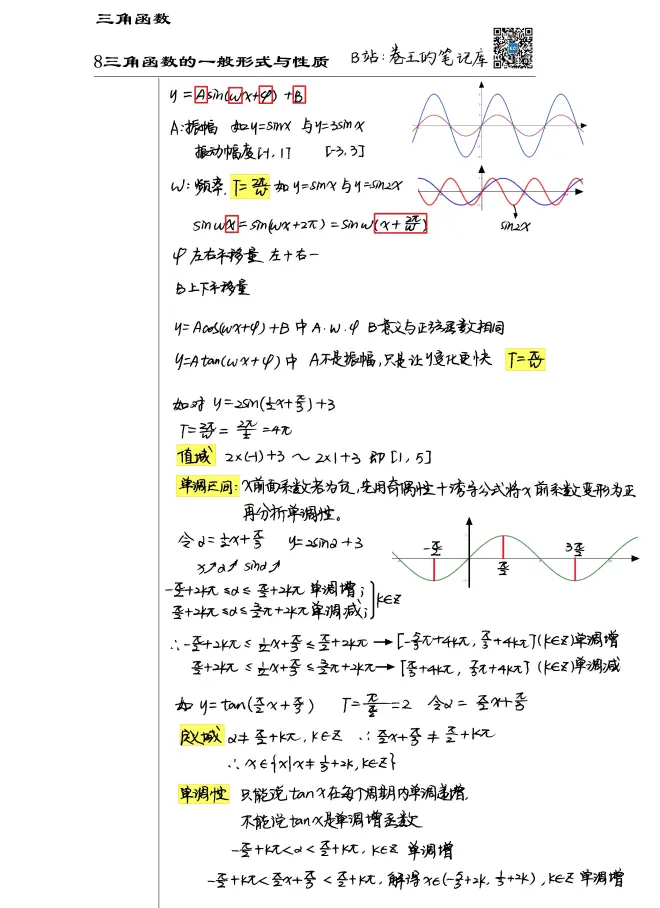 三角函数
8三角函数的一般形式与性质 B站:卷王的笔记库
y=Asin(ωx+φ)+B
A:振幅 如y=sinx 与y=3sinx
振动幅度[-1,1] [-3,3]
ω:频率, T=2π/ω 如y=sinx与y=sin2x
sinωx=sin(ωx+2π)=sinω(x+2π/ω)
sin2x
φ 左右平移量 左+右-
B上下平移量
y=Acos(ωx+φ)+B 中 A.ω.φ B意义与正弦函数相同
y=Atan(ωx+φ)中 A不是振幅,只是让y变化更快 T=π/ω
如对 y=2sin(½x+π/3)+3
T=2π/ω=2π/½=4π
值域 2×(-1)+3 ~ 2×1+3 即[1,5]
单调区间: x前面系数若为负,先用奇偶性+诱导公式将x前系数变形为正
再分析单调性。
令α=½x+π/3 y=2sinα+3
x↗α↗ sinα↗
-π/2 π/2 3π/2
-π/2+2kπ≤α≤π/2+2kπ 单调增;
π/2+2kπ≤α≤3/2π+2kπ单调减; }k∈Z
∴-π/2+2kπ≤½x+π/3≤π/2+2kπ→[-5/3π+4kπ, π/3+4kπ](k∈Z)单调增
π/2+2kπ≤½x+π/3≤3/2π+2kπ→[π/3+4kπ, 7/3π+4kπ](k∈Z)单调减
如 y=tan(π/2x+π/3) T=π/(π/2)=2 令α=π/2x+π/3
定义域 α≠π/2+kπ,k∈Z ∴π/2x+π/3≠π/2+kπ
∴x∈{x|x≠1/3+2k,k∈Z}
单调性 只能说tanx在每个周期内单调递增,
不能说tanx是单调增函数
-π/2+kπ<α<π/2+kπ, k∈Z 单调增
-π/2+kπ<π/2x+π/3<π/2+kπ, 解得x∈(-5/3+2k, 1/3+2k),k∈Z 单调增